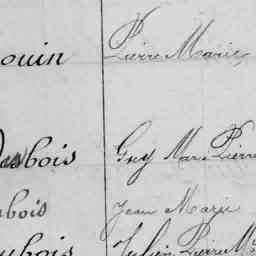 ouin Pierre Marie
Dubois Guy Marie Pierre
ubois Jean Marie
ubois Julien Pierre M